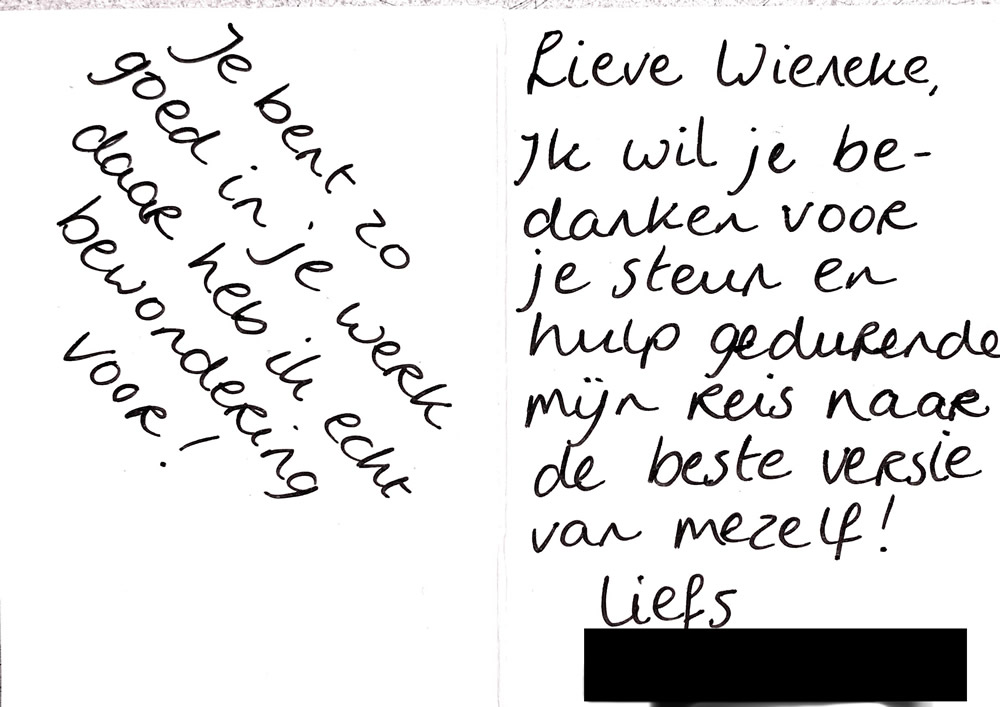 Je bent zo
goed in je werk
daar heb ik echt
bewondering
voor!
Lieve Wieneke,
Ik wil je be-
danken voor
je steun en
hulp gedurende
mijn reis naar
de beste versie
van mezelf!
Liefs